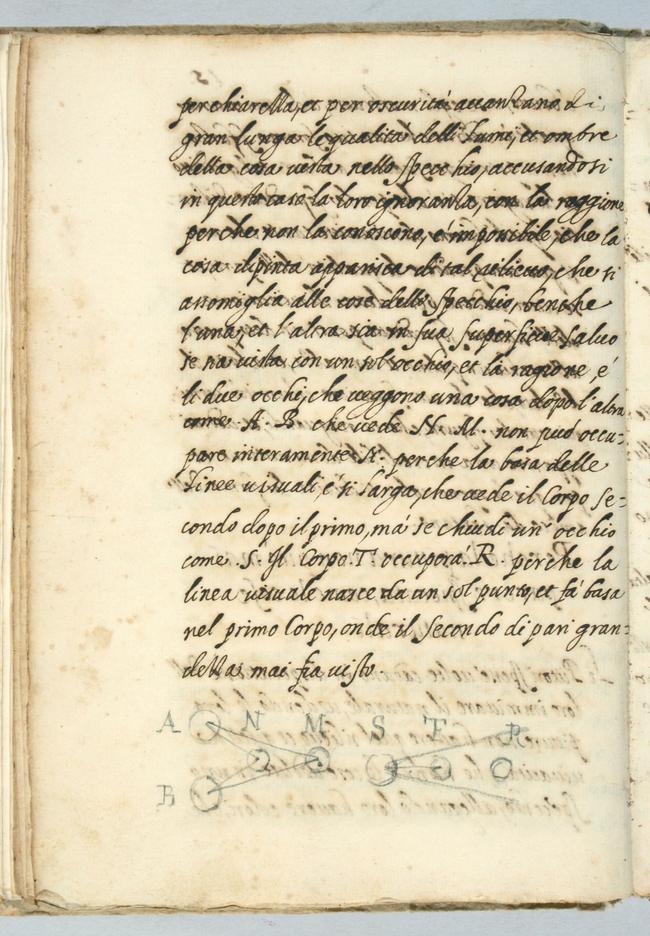 per chiarezza, et per oscurità avanzano di
gran lunga le qualità delli lumi, et ombre
della cosa vista nello specchio, accusandosi
in questo caso la loro ignoranza, con la raggione
perche non la conoscono, é impossibile, che la
cosa dipinta apparisca di tal rilievo, che si
assomiglia alle cose dello specchio, benche
l'una, et l'altra sia in sua superficie salvo
se sia vista con un sol occhio, et la ragione, é
li due occhi, che veggono una cosa dopo l'altra
come A. B. che vede N. M. non può occu-
pare interamente N. perche la basa delle
linee visuali, é si larga, che vede il Corpo se-
condo dopo il primo, má se chiudi un' occhio
come .S. Il Corpo T. occuperá .R. perche la
linea visuale nasce da un sol punto, et fá basa
nel primo Corpo, onde il secondo di pari gran-
dezza, mai fia visto.
A N M S T R
B